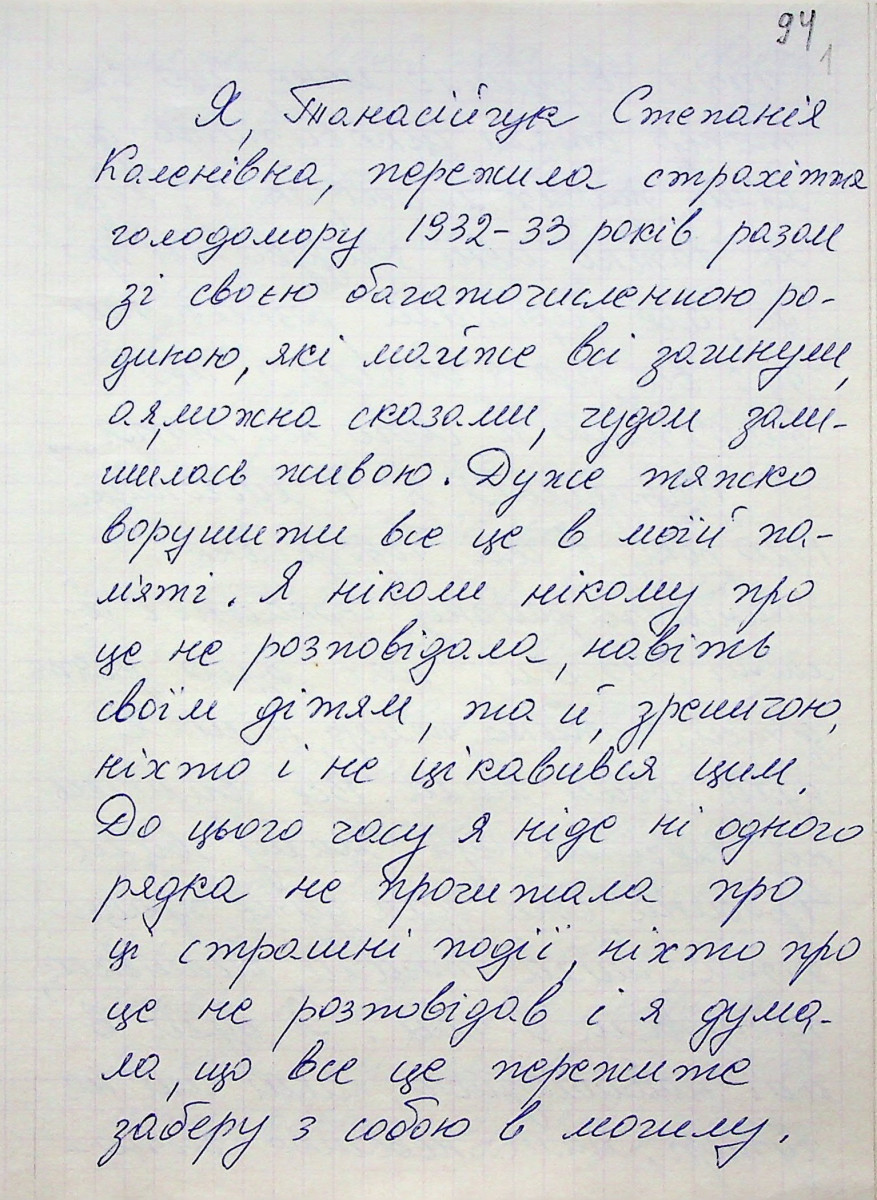 94
1
Я, Танасійчук Степанія
Каленівна, пережила страхіття
голодомору 1932-33 років разом
зі своєю багаточисленною ро-
диною, які майже всі загинули,
а я, можна сказати, чудом зали-
шилась живою. Дуже тяжко
ворушити все це в моїй па-
м'яті. Я ніколи нікому про
це не розповідала, навіть
своїм дітям, та й, зрештою,
ніхто і не цікавився цим.
До цього часу я ніде ні одного
рядка не прочитала про
ці страшні події, ніхто про
це не розповідав і я дума-
ла, що все це пережите
заберу з собою в могилу.